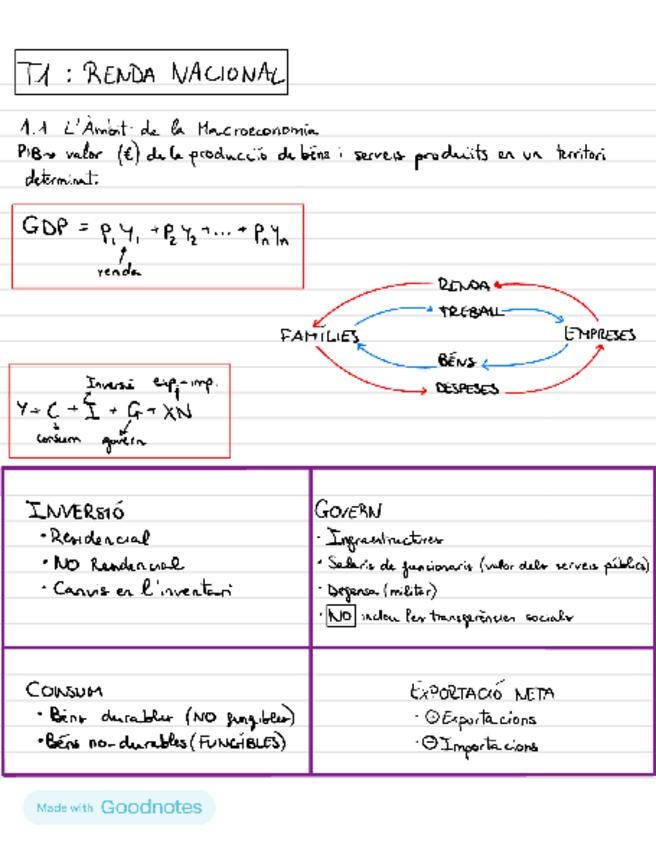 T1 : RENDA NACIONAL
1.1 L'Àmbit de la Macroeconomia
PIB → valor (€) de la producció de béns i serveis produïts en un territori
determinat.
GDP = P₁Y₁ + P₂Y₂ + ... + PₙYₙ
renda
RENDA
TREBALL
FAMÍLIES
EMPRESES
BÉNS
DESPESES
Inversió exp - imp.
Y = C + I + G + XN
consum govern
INVERSIÓ
· Residencial
· NO Residencial
· Canvis en l'inventari
GOVERN
· Infraestructures
· Salaris de funcionaris (valor dels serveis públics)
· Defensa (militar)
· NO inclou les transferències socials
CONSUM
· Béns durables (NO fungibles)
· Béns no-durables (FUNGIBLES)
EXPORTACIÓ NETA
· ⊕ Exportacions
· ⊖ Importacions
Made with Goodnotes